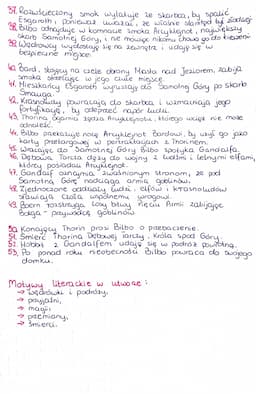 37. Rozwścieczony smok wylatuje ze skarbca, by spalić
Esgaroth, ponieważ uważał, że właśnie stamtąd
38. Bilbo odnajduje w komnacie smoka Arcyklejnot, największy
skarb Samotnej Góry, i nie mówiąc nikomu chowa go do kieszeni
39. Wędrowcy wydostają się na zewnątrz i udają się w
bezpieczne miejsce.
40. Bard, stojący na czele obrony Miasta nad Jeziorem, zabija
smoka strzelając w jego czułe miejsce.
41. Mieszkańcy Esgaroth wyruszają do Samotnej Góry po skarb
Smauga.
42. Krasnoludy powracają do skarbca i wzmacniają jego
fortyfikację, by odeprzeć napór ludzi.
43. Thorina ogarnia żądza Arcyklejnotu, którego wciąż nie może
odnaleźć.
44. Bilbo przekazuje rolę Arcyklejnot Bardowi, by użył go jako
karty przetargowej w pertraktacjach z Thorinem.
45. Wracając do Samotnej Góry Bilbo spotyka Gandalfa.
46. Dębowa Tarcza dąży do wojny z ludźmi i leśnymi elfami,
którzy posiadają Arcyklejnot.
47. Gandalf oznajmia zwaśnionym stronom, że pod
Samotną Górę nadciąga armia goblinów.
48. Zjednoczone oddziały ludzi, elfów i krasnoludów
stawiają czoła wspólnemu wrogowi.
49. Beorn rozstrzyga losy bitwy Pięciu Armii zabijając
Bolga - przywódcę goblinów
50. Konający Thorin prosi Bilbo o przebaczenie.
51. Śmierć Thorina Dębowej Tarczy, Króla spod Góry.
52. Hobbit z Gandalfem udają się w podróż powrotną.
53. Po ponad roku nieobecności Bilbo powraca do swojego
domku.
Motywy literackie w utworze:
→ wędrówki i podróży,
→ przyjaźni,
→ magii,
→ przemiany,
→ śmierci.